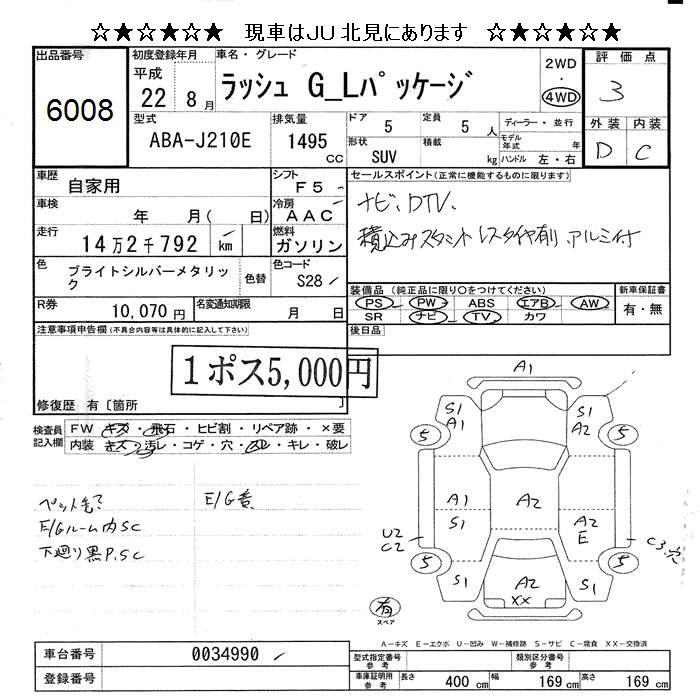 ☆★☆★☆★ 現車はJU 北見にあります ☆★☆★☆★
出品番号
6008
初度登録年月
平成
22 8月
車名・グレード
ラッシュ G_Lパッケージ
2WD
・
4WD
評価点
3
外装 内装
D C
型式
ABA-J210E
排気量
1495
CC
ドア
5
定員
5 人
形状
SUV
積載
kg
ディーラー・並行
モデル年式 年
ハンドル 左・右
車歴
自家用
シフト
F5
車検
年 月( 日)
冷房
AAC
走行
14万2千792 km
燃料
ガソリン
色
ブライトシルバーメタリック
色替
色コード
S28
R券
10,070 円
名変通知期限
月 日
セールスポイント(正常に機能するものに限ります)
ナビ、DTV、
積込みスタットレスタイヤ有り アルミ付
装備品 (純正品に限り○をつけてください)
PS PW ABS エアB AW
SR ナビ TV カワ
新車保証書
有・無
後日品
注意事項申告欄(不具合内容等は具体的に記入して下さい)
1ポス5,000円
修復歴 有〔箇所
検査員記入欄
FW キズ・飛石・ヒビ割・リペア跡・×要
内装 キズ・汚レ・コゲ・穴・スレ・キレ・破レ
ペット毛?
E/Gルーム内SC
下廻り黒P,SC
E/G音
A1
S1
A1
S1
A2
5
5
A1
S1
A2
A2
E
U2
C2
C3.穴
5
5
S1
A2
XX
S1
有
スペア
A-キズ E-エクボ U-凹み W-補修跡 S-サビ C-腐食 XX-交換済
車台番号
0034990
登録番号
型式指定番号
参考
類別区分番号
参考
車庫証明用
参考
長さ 400 cm 幅 169 cm 高さ 169 cm